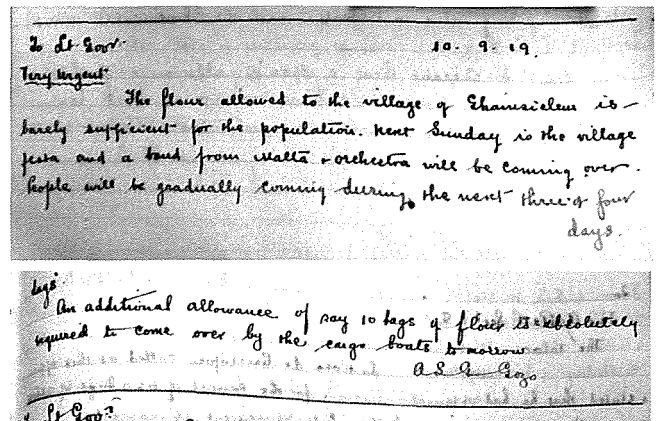 To Lt Govr. 10. 9. 19.
Very Urgent
The flour allowed to the village of Ghainsielem is
barely sufficient for the population. Next Sunday is the village
festa and a band from Malta & orchestra will be coming over.
People will be gradually coming during the next three or four
days.
An additional allowance of say 10 bags of flour is absolutely
required to come over by the cargo boats to morrow
Gozo
Lt Govr